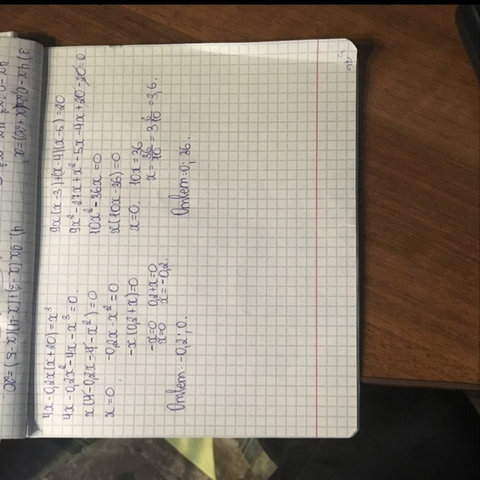 4x-0,2x(x+20)=x³
4x-0,2x²-4x-x³=0.
x(4-0,2x-4-x²)=0
x=0. -0,2x-x²=0
-x(0,2+x)=0
-x=0 0,2+x=0
x=0 x=-0,2.
Ответ: -0,2; 0.
9x(x-3)+(x-4)(x-5)=20
9x²-27x+x²-5x-4x+20-20=0
10x²-36x=0
x(10x-36)=0
x=0. 10x=36
x=36/10=3 6/10=3,6.
Ответ: 0; 36.
3) 4x-0,2x(x+20)=x³
4) 9x(x-3)+(x-4)(x-5)=20